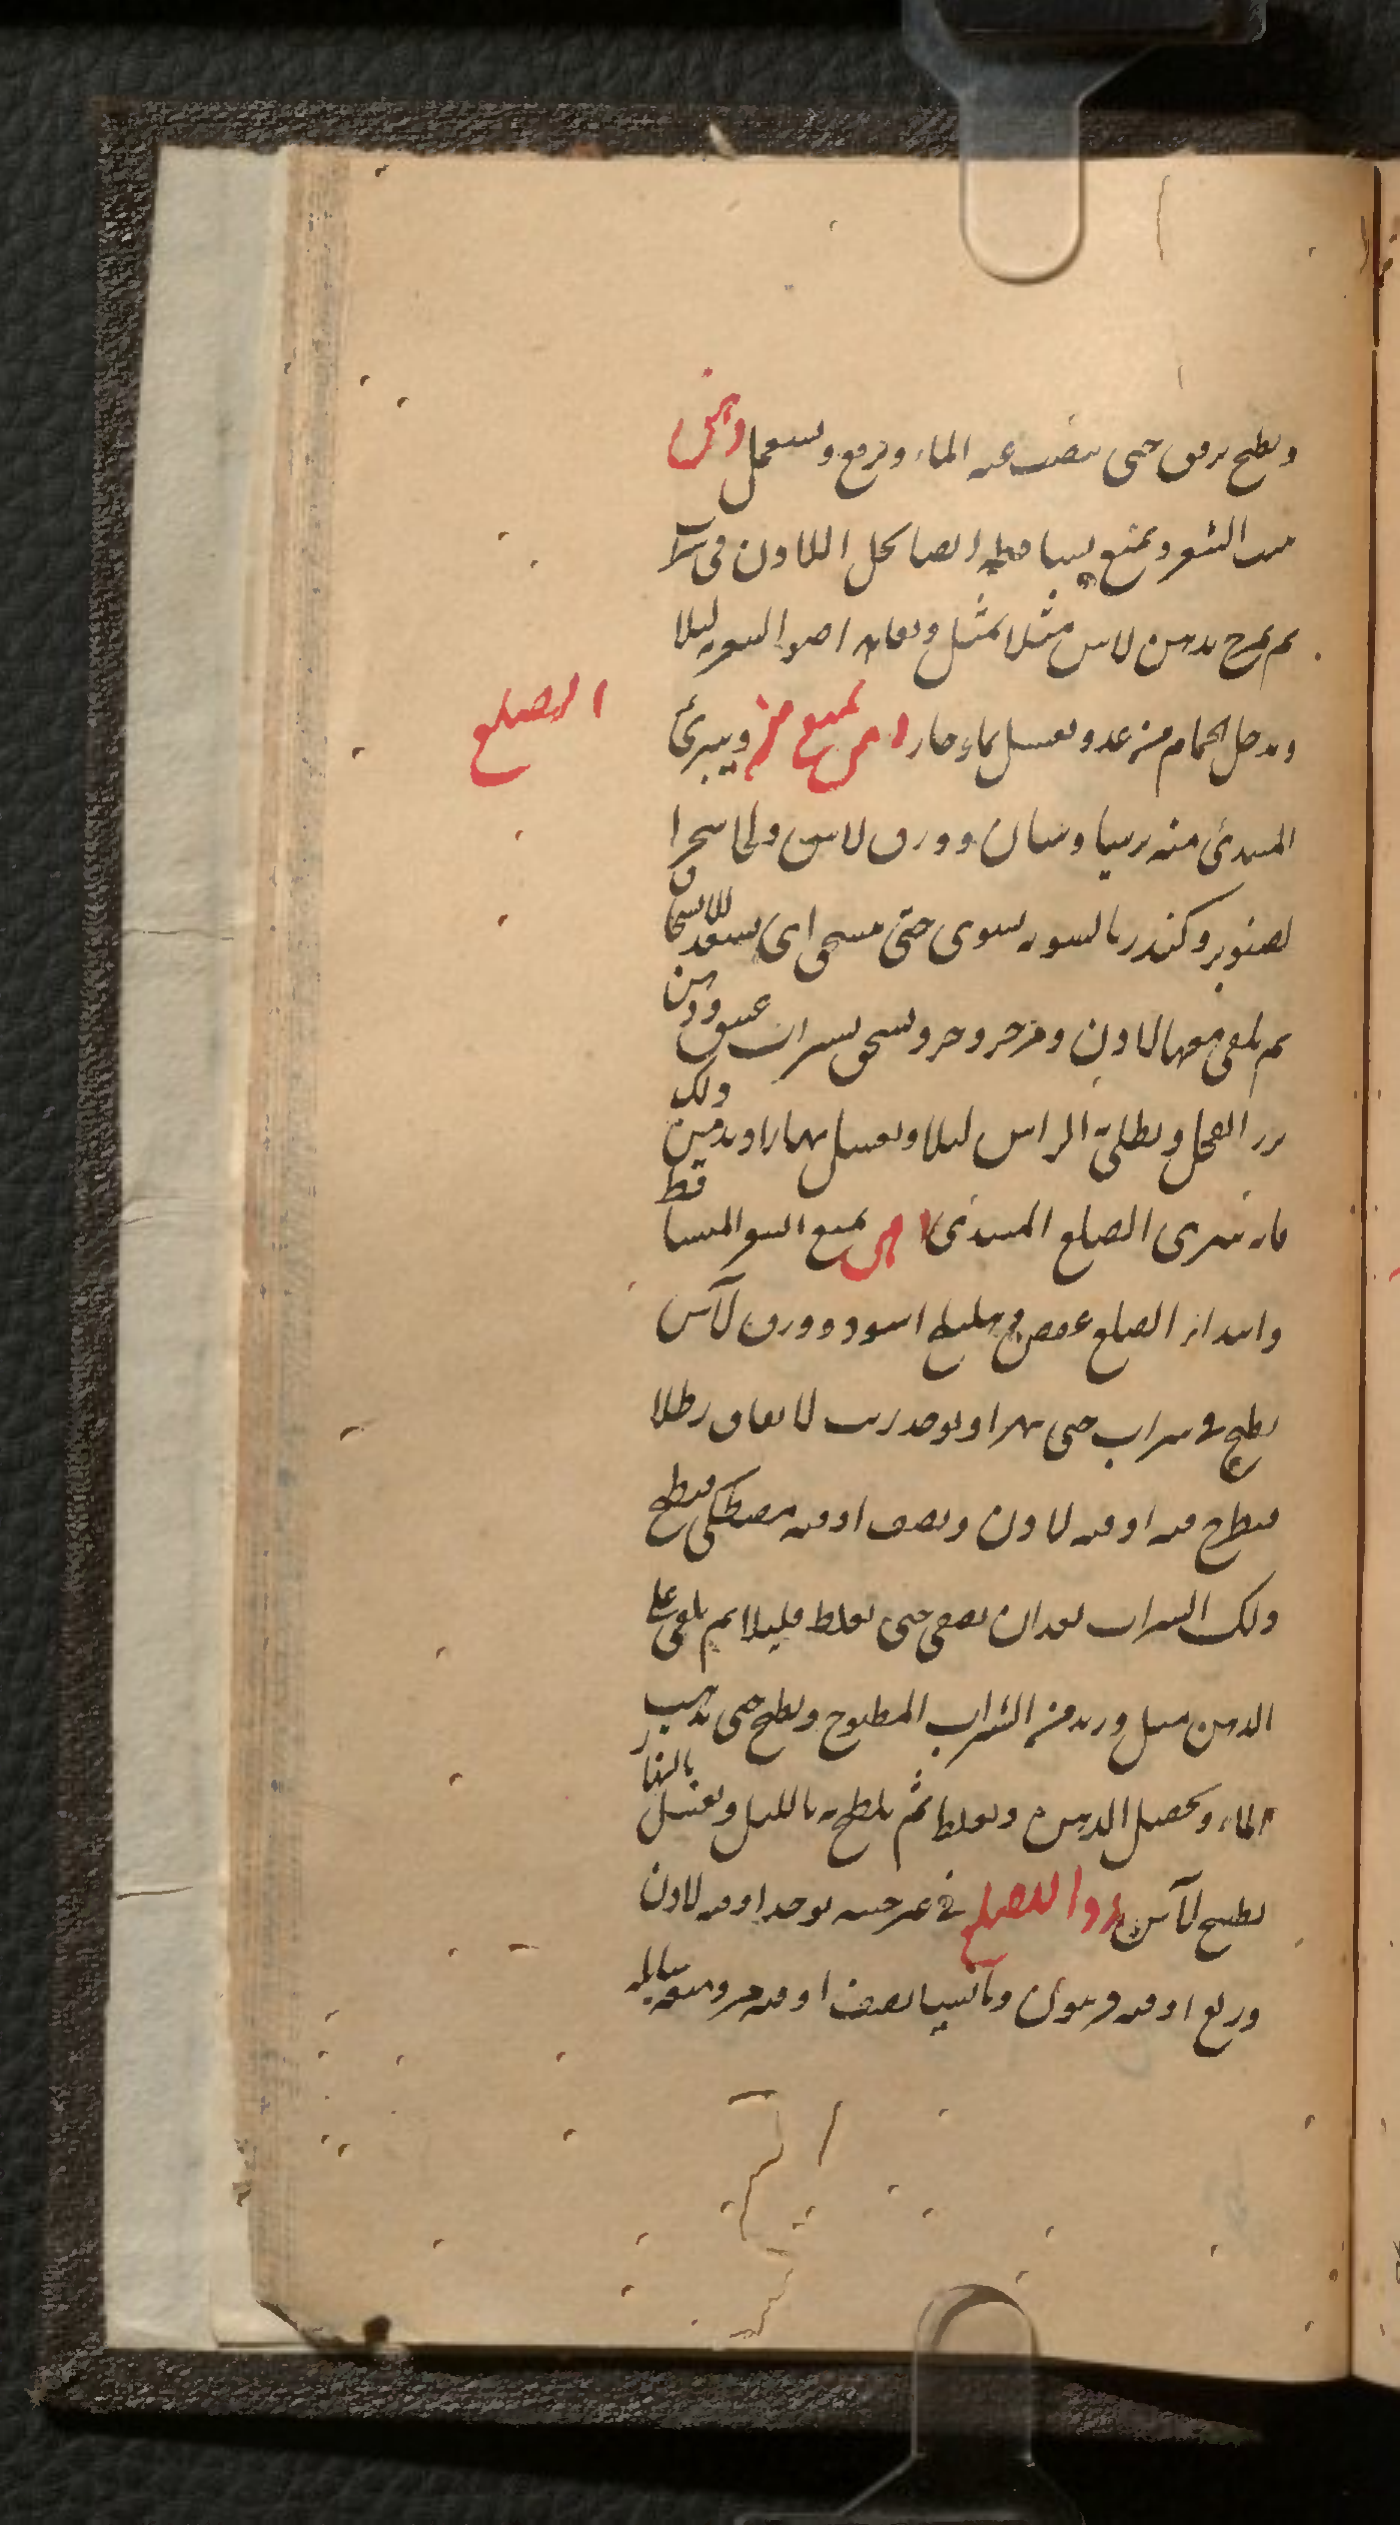 ويطبخ برفق حتى ينضب عنه الماء ويرفع ويستعمل
الشعر ويمنع تساقطه ايضا يحل اللادن في شراب
ثم يمزج بدهن لاس مثلا بمثل ويعان اصول الشعر ليلا
ويدخل الحمام من غد ويغسل بماء حار اخرى تمنع من ويبرئ
الصلع
المبتدئ منه برسياوشان وورق لاس ولحا شجرا
لصنوبر وكندر بالسويه يشوى حتى ينسحق اى يستعد للانسحاق
ثم يلقى معها لادن ومن خر وخر ويسحق بشراب عتيق ودهن
بزر الفجل ويطلى الراس ليلا ويغسل نهارا ويدمن ذلك
فانه يبرى الصلع المبتدئ اخرى تمنع الشعر المتساقط
وابتداء الصلع عفص هليلج اسود وورق لآس
يطبخ في شراب حتى يتهرا ويوخذ زيت لانفاق رطلا
فيطرح فيه اوقيه لادن ونصف اوقيه مصطكى فيطبخ
ذلك الشراب بعد ان يصفى حتى يغلظ قليلا ثم يلقى على
الدهن مثل وزنه من الشراب المطبوخ ويطبخ حتى يذهب
الماء ويحصل الدهن ويغلظ ثم يلطخ به بالليل ويغسل بالنهار
بطبيخ لآس دوا للصلع في غير حينه يوخذ اوقيه لادن
وربع اوقيه فربيون وتافسيا نصف اوقيه مر وميعه سايله